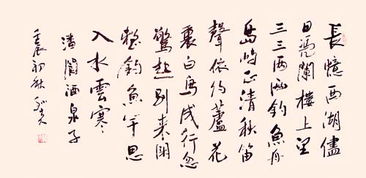 長憶西湖儘
日凭闌樓上望
三三兩兩釣魚舟
島嶼正清秋笛
聲依約蘆花
裏白鳥成行忽
驚起別來閒
整釣魚竿思
入水雲寒
潘閬酒泉子
壬辰初秋